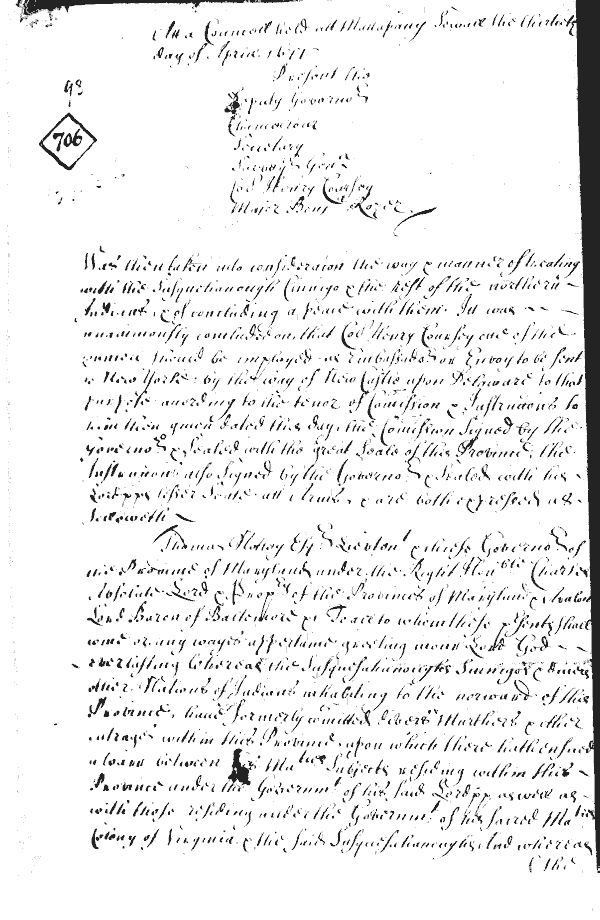 Att a Councill held att Mattapany Sewall the thirtieth
day of Aprill 1677
Present the
98
Deputy Governor
Chancellour
706
Secretary
Survey Genll
Col Henry Coursey
Major Benj Rozer
Was then taken into consideraion the way & manner of treating
with the Susquehanough Cinnigo & the rest of the northern
Indians, & of concluding a peace with them. Itt was
unanimously concluded on, that Col Henry Coursey one of the
Councill should be imployed as Embassador or Envoy to be sent
to New Yorke by the way of New Castle upon Delaware to that
purpose according to the tenor of Comission & Instruccons to
him then given dated this day, the Comission Signed by the
Governor & Sealed with the great Seale of this Province, the
Instruccons also Signed by the Governor & Sealed with his
Lordpps lesser Seale att Arms, & are both expressed as
followeth
Thomas Notley Esqr Lieutent & cheife Governor of
the Province of Maryland under the Right Honble Charles
Absolute Lord & Propry of the Provinces of Maryland & Avalon
Lord Baron of Baltemore &c To all to whom these psents shall
come or any wayes appertaine greeting in our Lord God
everlasting Whereas the Susquesahanoughs Sinnigos & divers
other Nations of Indians inhabiting to the norward of this
Province, have formerly comitted divers Murthers & other
outrages within this Province, upon which there hath ensued
a warr between his Maties Subjects residing within this
Province under the Governmt of his said Lordpp as well as
with those residing under the Governmt of his sacred Maties
Colony of Virginia & the said Susquesahanoughs And whereas
(the